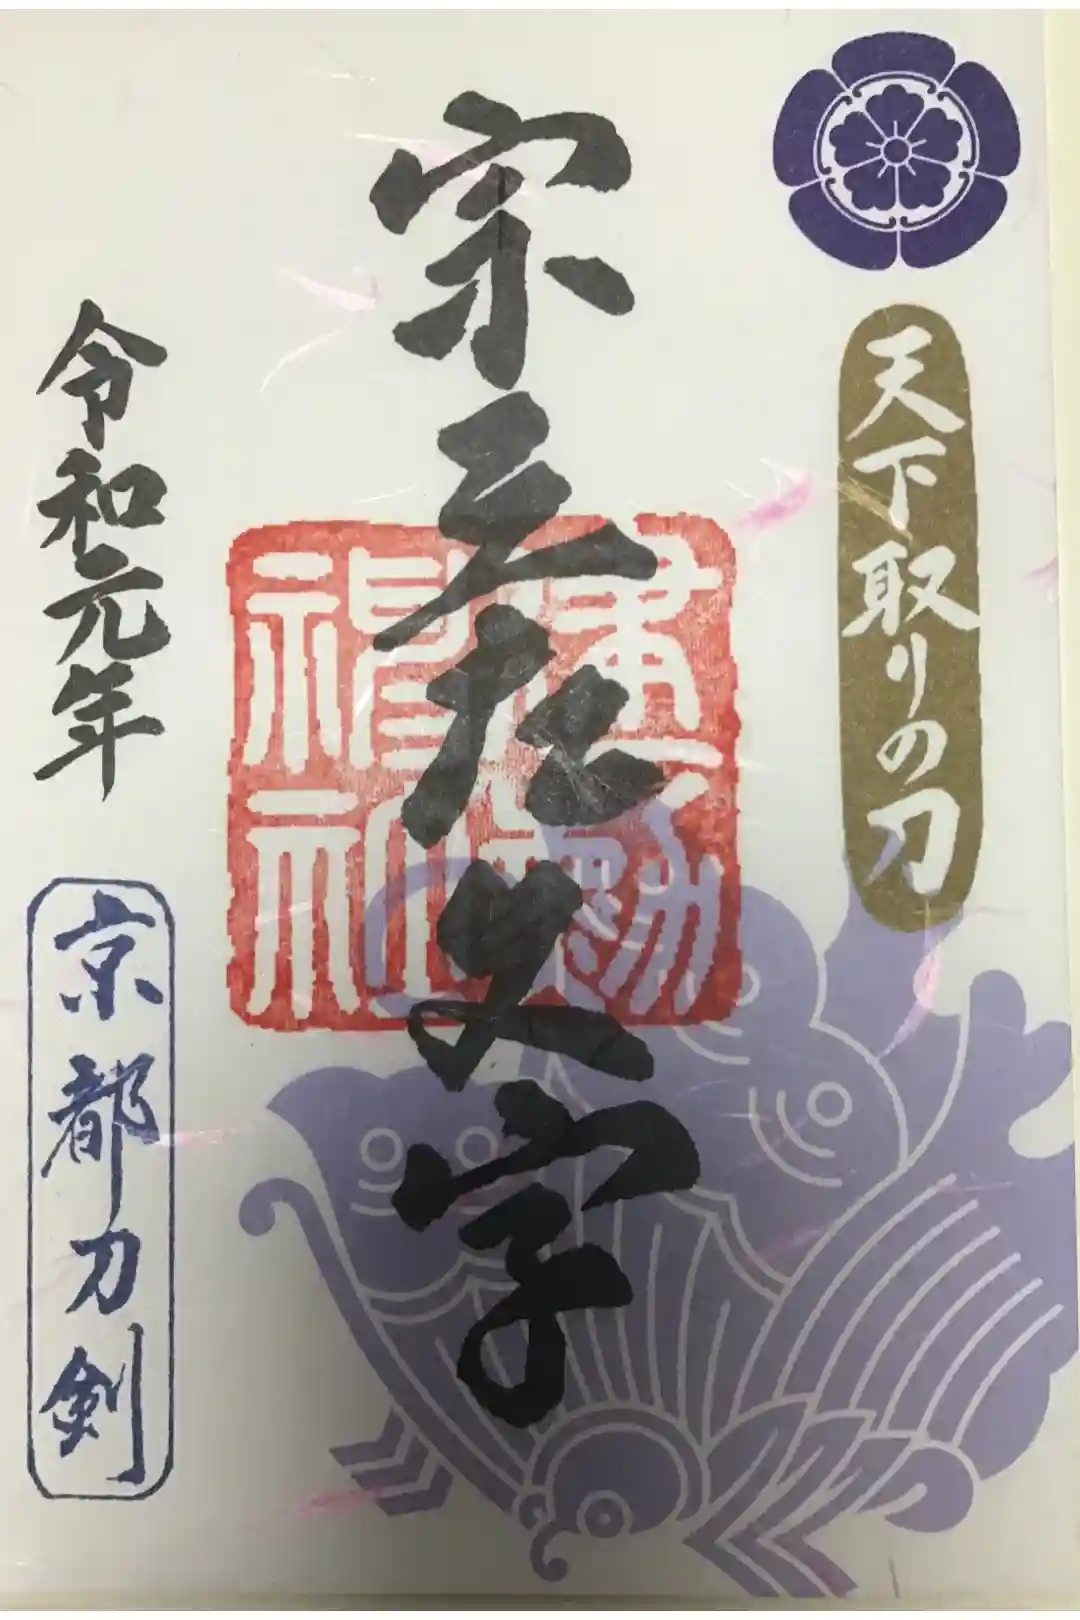 天下取りの刀
宗三左文字
建勲神社
令和元年
京都刀剣